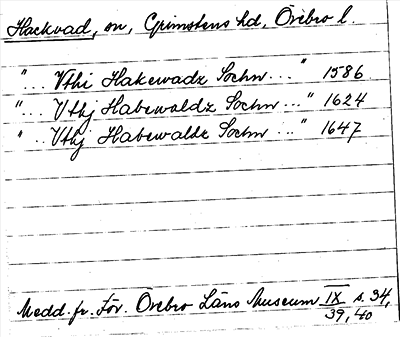 Hackvad, sn, Grimstens hd, Örebro l.
"... Vthi Hakewadz Sochn ..." 1586
"... Vthj Habewaldz Sochn ..." 1624
"... Vthj Habewaldz Sochn ..." 1647
Medd. fr. För. Örebro Läns Museum IX s. 34,
39, 40